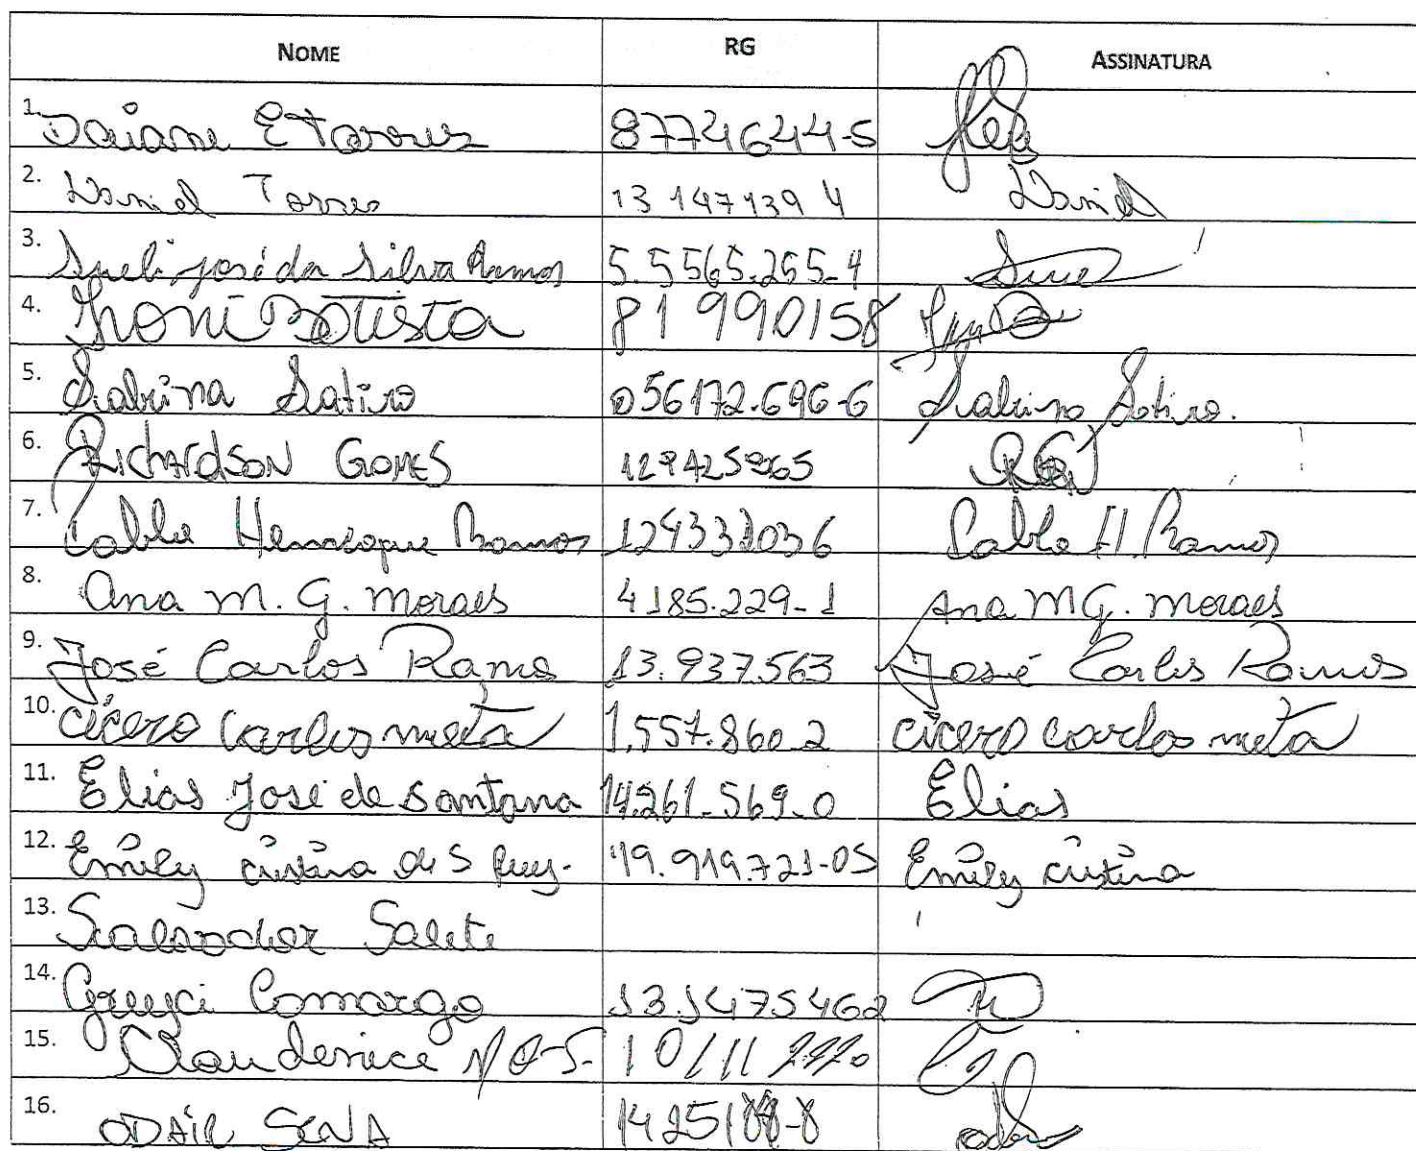 NOME RG ASSINATURA
1. Daiane E Torres 8774644-5
2. Daniel Torres 13 1471394 Daniel
3. Sueli José da Silva Ramos 5.5565.265-4 Sueli
4. Batista 81 990158
5. Sabrina Satiro 056172.696-6 Sabrina Satiro.
6. Richardson Gomes
7. Pablo Henrique Ramos 124331036 Pablo H. Ramos
8. Ana M. G. Moraes 4185.229-1 Ana M G. Moraes
9. José Carlos Ramos 13.937.563 José Carlos Ramos
10. Cicero Carlos meta 1.557.860 2 Cicero Carlos meta
11. Elias José de Santana 14.261.569-0 Elias
12. Emily cristina de S 49.919.721-05 Emily cristina
13. Salvador Salete
14. Greyci Camargo 13.1475462
15. Claudenice
16. ODAIR SENA